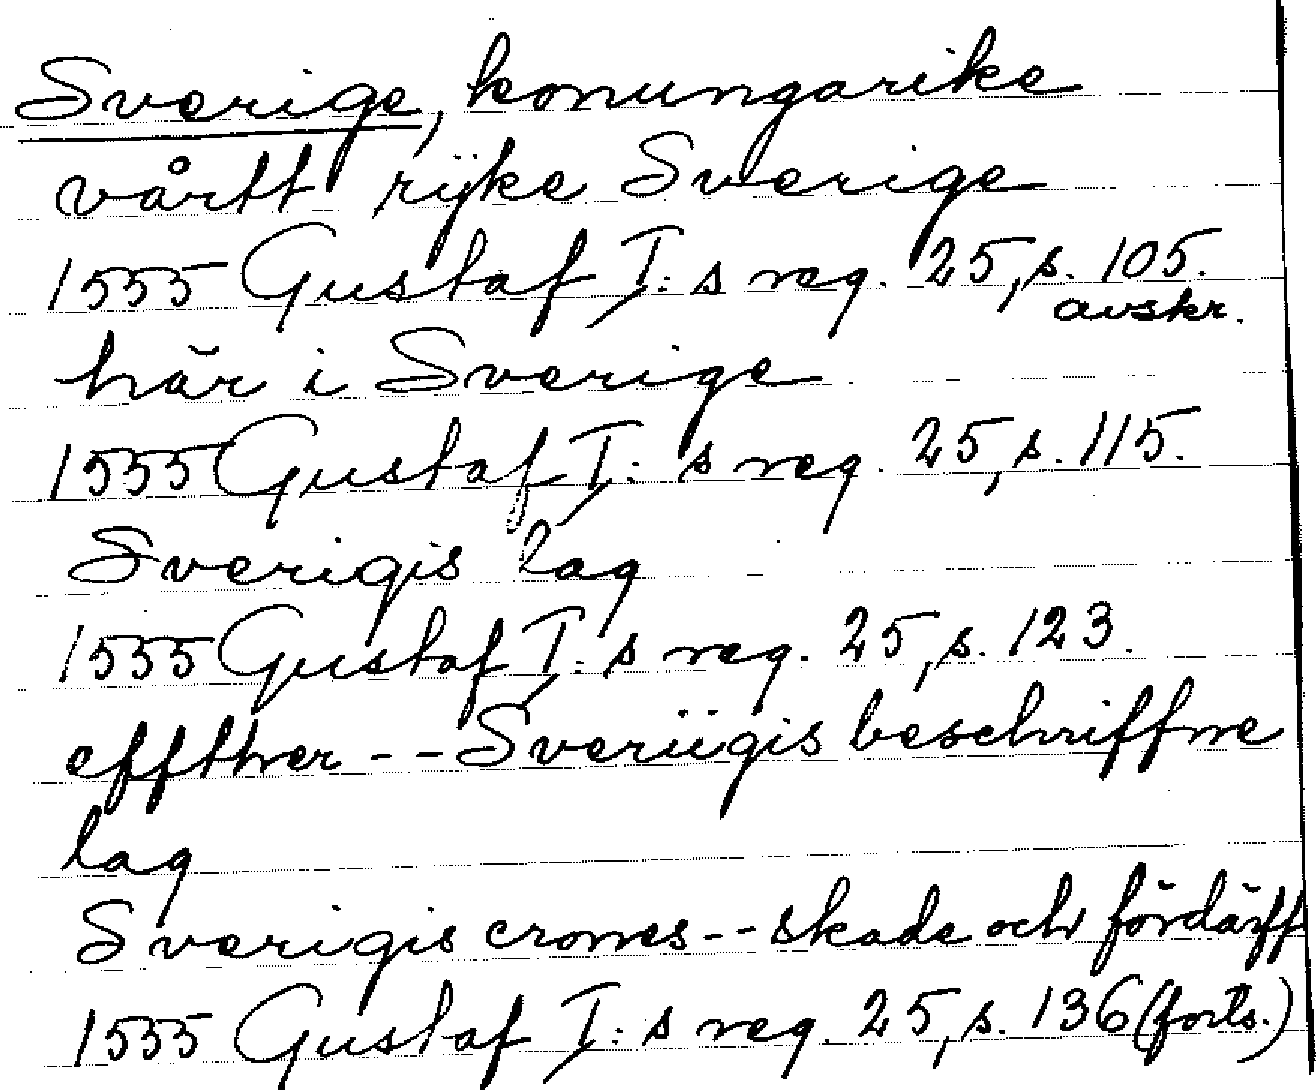 Sverige, konungarike
vårtt rijke Sverige
1555 Gustaf I:s reg. 25, s. 105.
avskr.
här i Sverige
1555 Gustaf I:s reg. 25, s. 115.
Sverigis lag
1555 Gustaf I:s reg. 25, s. 123.
effther -- Sveriigis beschriffne
lag
Sverigis crones -- skade och fördärff
1555 Gustaf I:s reg. 25, s. 136 (forts.)